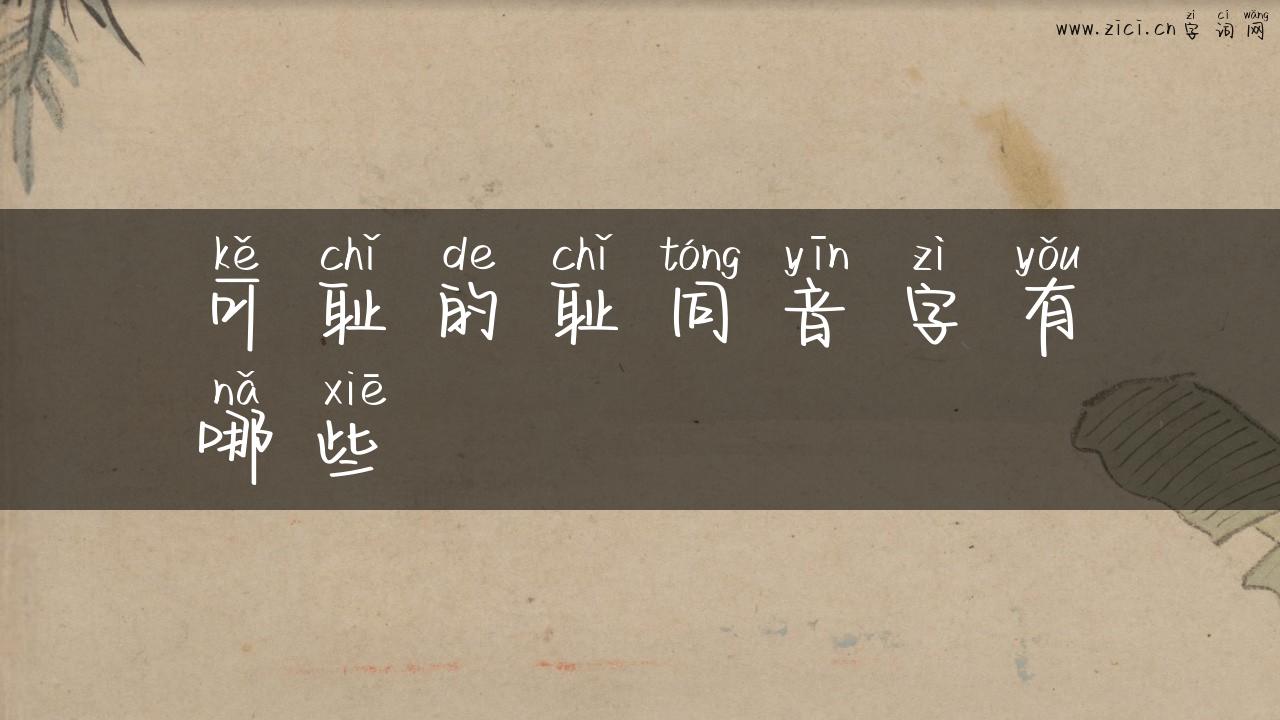 zì cí wǎng
www.zici.cn 字词网
kě chǐ de chǐ tóng yīn zì yǒu
可耻的耻同音字有
nǎ xiē
哪些